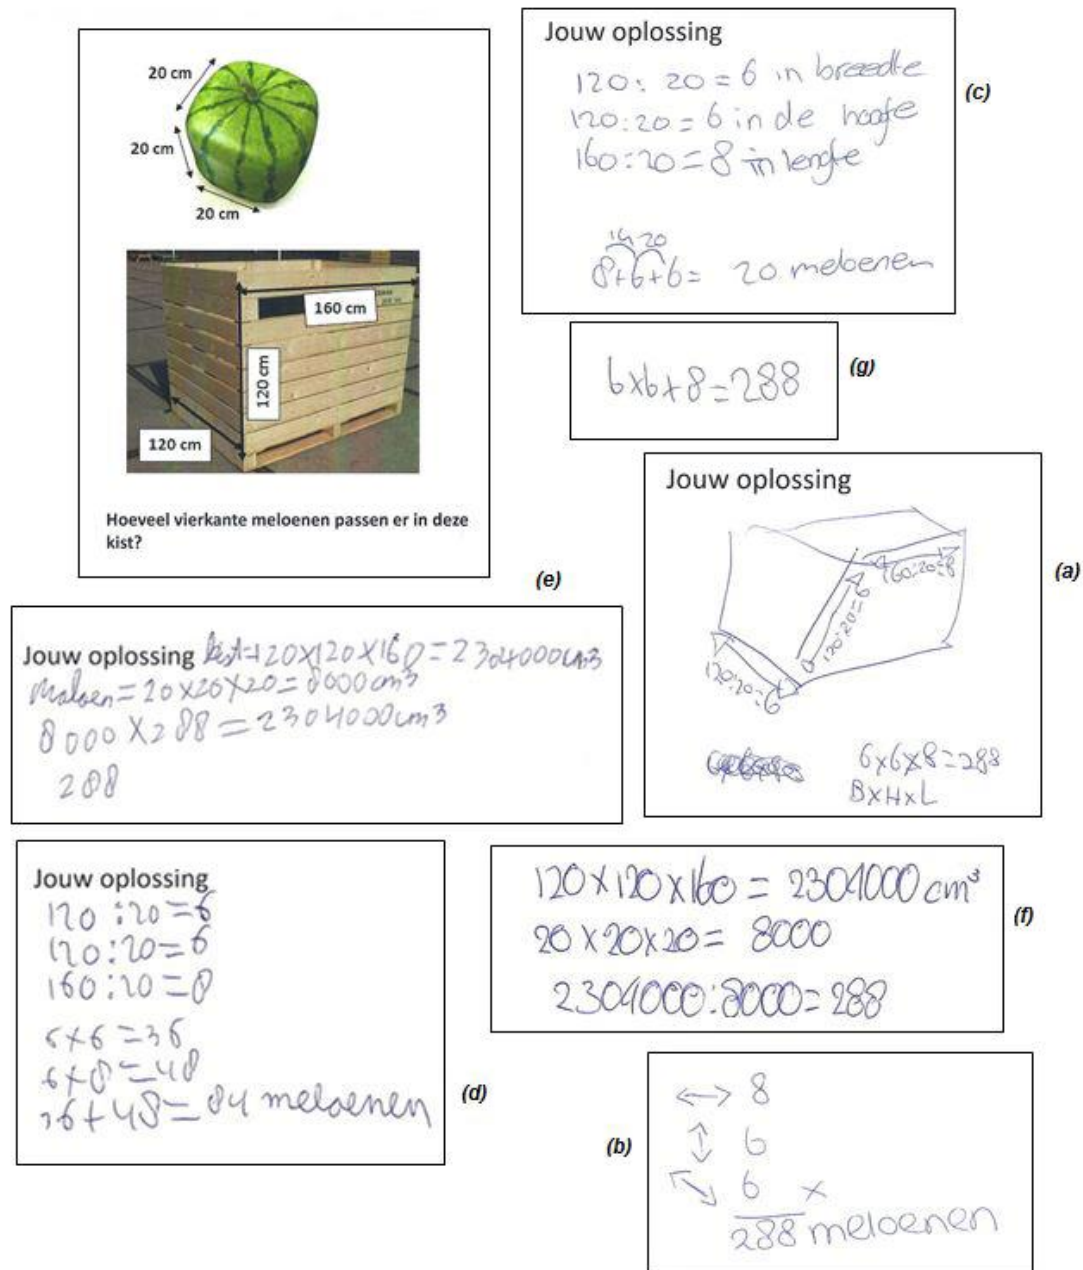 20 cm
20 cm
20 cm
160 cm
120 cm
120 cm
Hoeveel vierkante meloenen passen er in deze
kist?
Jouw oplossing
120 : 20 = 6 in breedte
120:20 = 6 in de hoogte
160:20 = 8 in lengte
14 20
8+6+6= 20 meloenen
(c)
6x6x8=288
(g)
Jouw oplossing
160:20=8
120:20=6
120:20=6
6x6x8=288
BxHxL
(a)
(e)
Jouw oplossing kist=120x120x160=2304000cm3
Meloen=20x20x20=8000cm3
8000x288=2304000cm3
288
Jouw oplossing
120:20=6
120:20=6
160:20=8
6x6=36
6x8=48
36+48=84 meloenen
(d)
120x120x160 = 2304000 cm³
20x20x20= 8000
2304000:8000=288
(f)
(b)
↔ 8
↕ 6
⤡ 6 x
288 meloenen